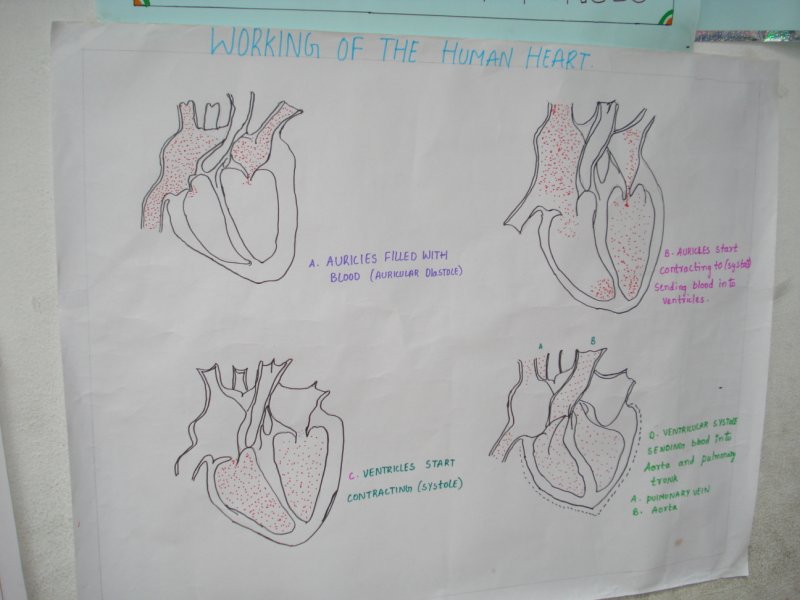 WORKING OF THE HUMAN HEART.
A. AURICIES FILLED WITH
BLOOD (AURICULAR DIASTOLE)
B. AURICLES start
contracting to (systole)
Sending blood into
ventricles.
C. VENTRICLES START
CONTRACTING (SYSTOLE)
A B
D. VENTRICULAR SYSTOLE
SENDING blood into
Aorta and pulmonary
trunk
A. PULMONARY VEIN
B. Aorta